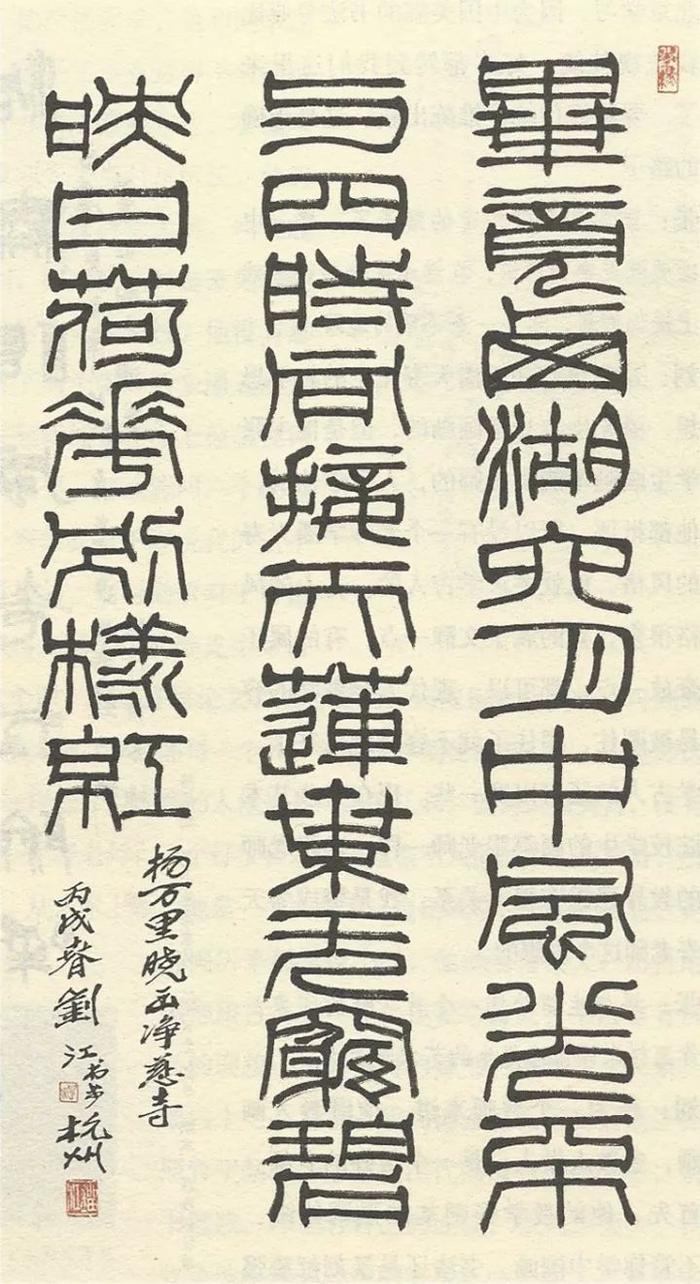 畢竟西湖六月中風光不
与四時同接天蓮葉无窮碧
映日荷華別樣紅
杨万里晓出净慈寺
丙戌春劉江书于杭州